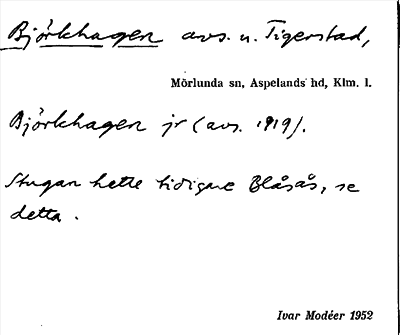 Björkhagen avs. u. Tigerstad,
Mörlunda sn, Aspelands hd, Klm. l.
Björkhagen jr (avs. 1919).
Stugan hette tidigare Blåsås, se
detta.
Ivar Modéer 1952